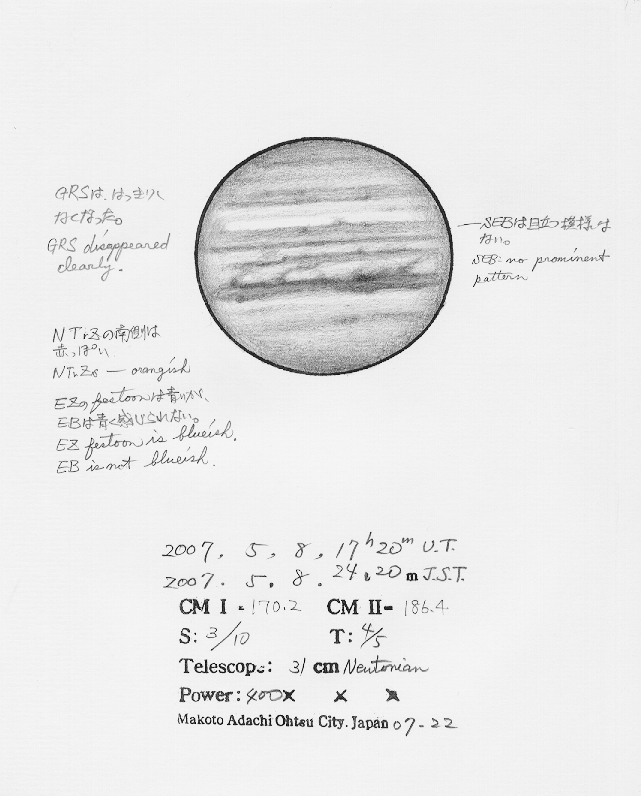 GRSは、はっきりし
なくなった。
GRS disappeared
clearly.
SEBは目立つ模様は
ない。
SEB: no prominent
pattern
NTrZの南側は
赤っぽい
NTrZs — orangish
EZのfestoonは青いが、
EBは青く感じられない。
EZ festoon is blueish.
EB is not blueish.
2007. 5, 8, 17h20m U.T.
2007. 5. 8. 24h20m J.S.T.
CM I = 170.2 CM II= 186.4
S: 3/10 T: 4/5
Telescope: 31 cm Newtonian
Power: 400× × ×
Makoto Adachi Ohtsu City. Japan 07-22